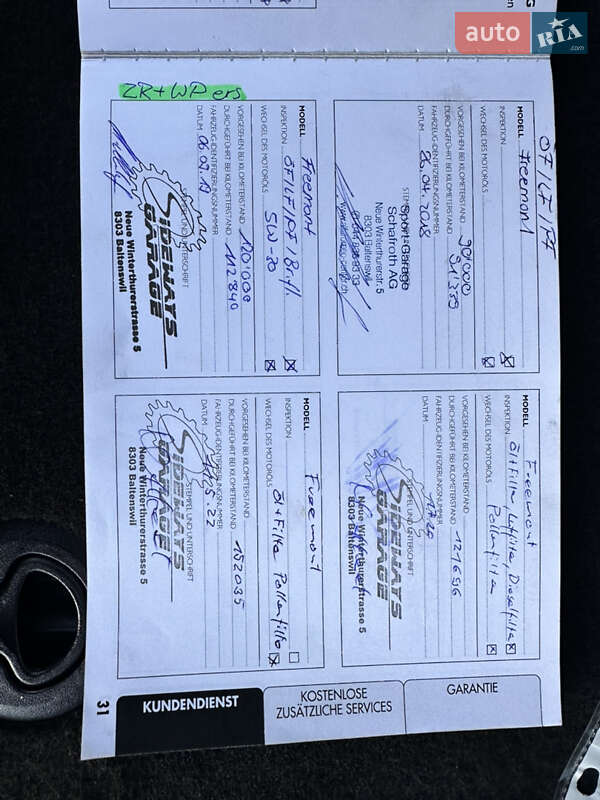 auto RIA.com
G
ÖF/LF/PF
MODELL Freemont
INSPEKTION
WECHSEL DES MOTORÖLS
VORGESEHEN BEI KILOMETERSTAND 90'000
DURCHGEFÜHRT BEI KILOMETERSTAND 91'339
FAHRZEUG-IDENTIFIZIERUNGSNUMMER
DATUM 06.04.2018
Sport-Garage
Schafroth AG
Neue Winterthurerstr. 5
8303 Baltenswil
MODELL Freemont
INSPEKTION Öl+Filter, Luftfilter, Dieselfilter
WECHSEL DES MOTORÖLS Pollenfilter
VORGESEHEN BEI KILOMETERSTAND
DURCHGEFÜHRT BEI KILOMETERSTAND 121696
FAHRZEUG-IDENTIFIZIERUNGSNUMMER
DATUM
STEMPEL UND UNTERSCHRIFT
SIDEWAYS
GARAGE
Neue Winterthurerstrasse 5
8303 Baltenswil
ZR+WP ers
MODELL Freemont
INSPEKTION ÖF/LF/
WECHSEL DES MOTORÖLS 5W-30
VORGESEHEN BEI KILOMETERSTAND 120'000
DURCHGEFÜHRT BEI KILOMETERSTAND 112'840
FAHRZEUG-IDENTIFIZIERUNGSNUMMER
DATUM 06.09.19
SIDEWAYS
GARAGE
Neue Winterthurerstrasse 5
8303 Baltenswil
MODELL Freemont
INSPEKTION
WECHSEL DES MOTORÖLS Öl+Filter Pollenfilter
VORGESEHEN BEI KILOMETERSTAND
DURCHGEFÜHRT BEI KILOMETERSTAND 152035
FAHRZEUG-IDENTIFIZIERUNGSNUMMER
DATUM
STEMPEL UND UNTERSCHRIFT
SIDEWAYS
GARAGE
Neue Winterthurerstrasse 5
8303 Baltenswil
GARANTIE
KOSTENLOSE
ZUSÄTZLICHE SERVICES
KUNDENDIENST
31